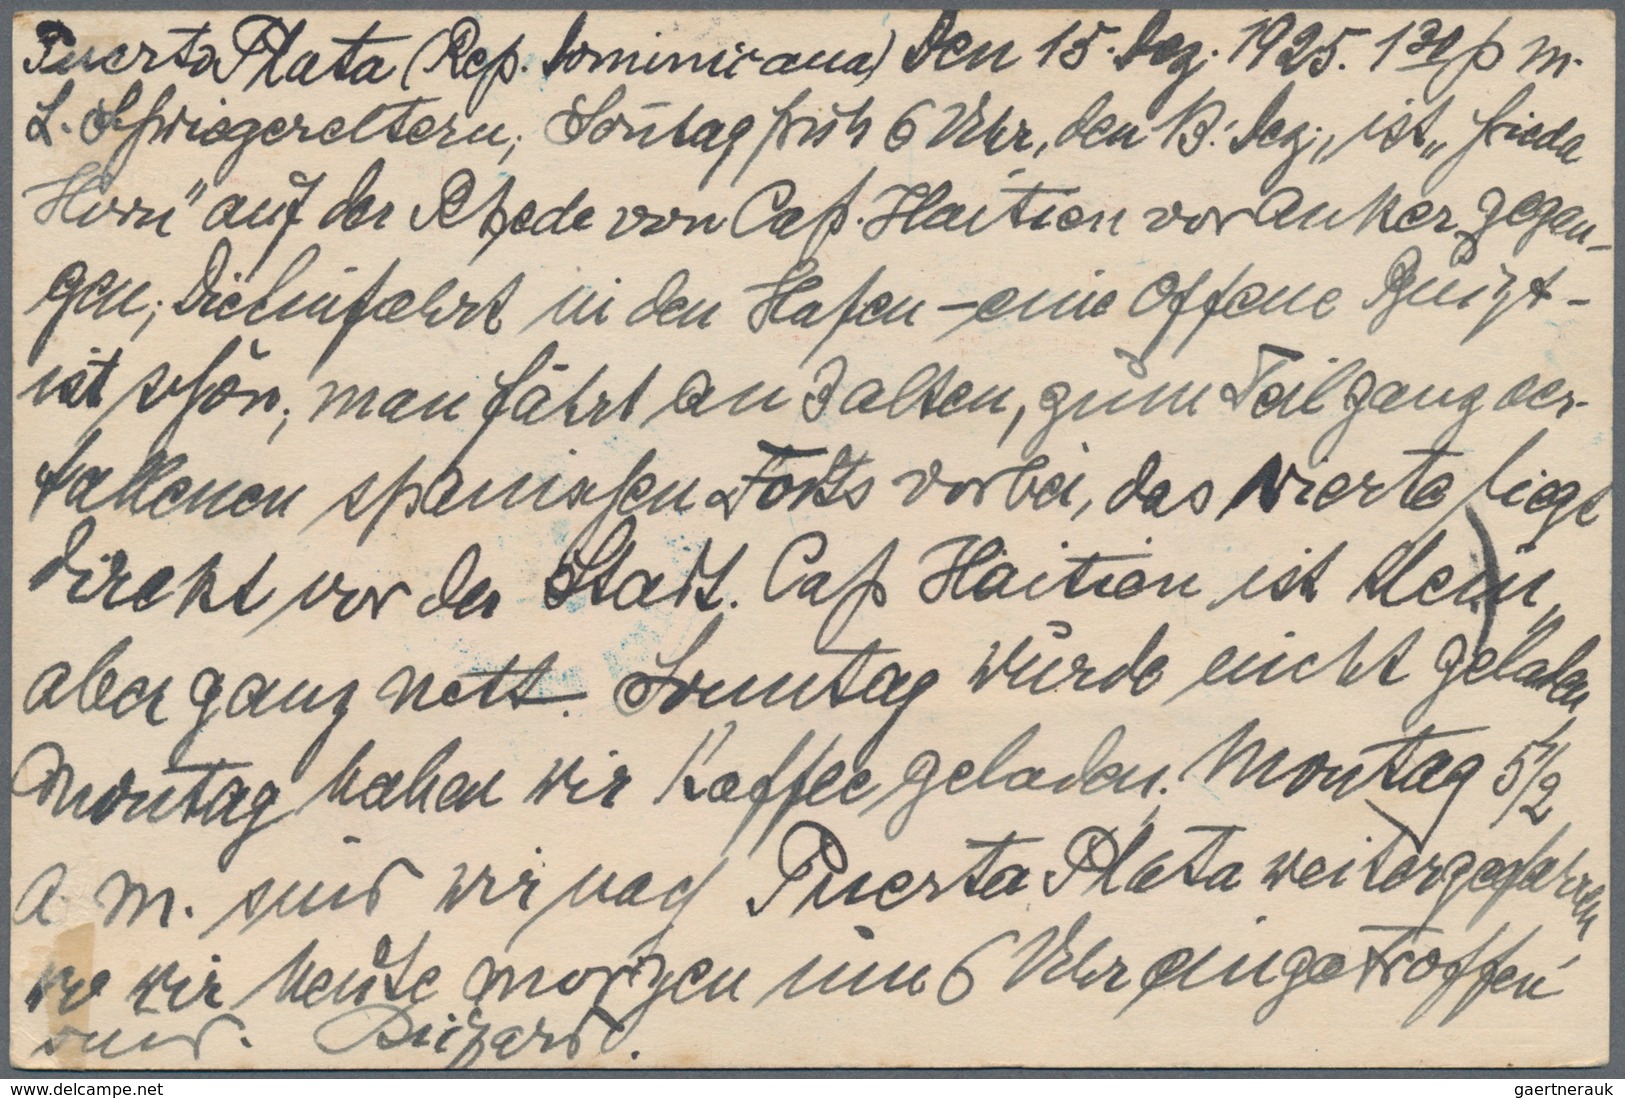 Puerto Plata (Rep. Dominicana) den 15. Dez. 1925. 1 30 p m.
L. Schwiegereltern, Sonntag früh 6 Uhr, den 13. Dez., ist „Frieda
Horn" auf der Rhede von Cap. Haitien vor Anker gegan-
gen; Die Einfahrt in den Hafen – eine offene Bucht –
ist schön; man fährt an 3 alten, zum Teil ganz ver-
fallenen spanischen Forts vorbei, das vierte liegt
direkt vor der Stadt. Cap Haitien ist klein,
aber ganz nett. Sonntag wurde nicht geladen
Montag haben wir Kaffee geladen. Montag 5 1/2
a. m. sind wir nach Puerta Plata weitergefahren
wo wir heute morgen um 6 Uhr eingetroffen
sind.
delcampe.net
gaertnerauk